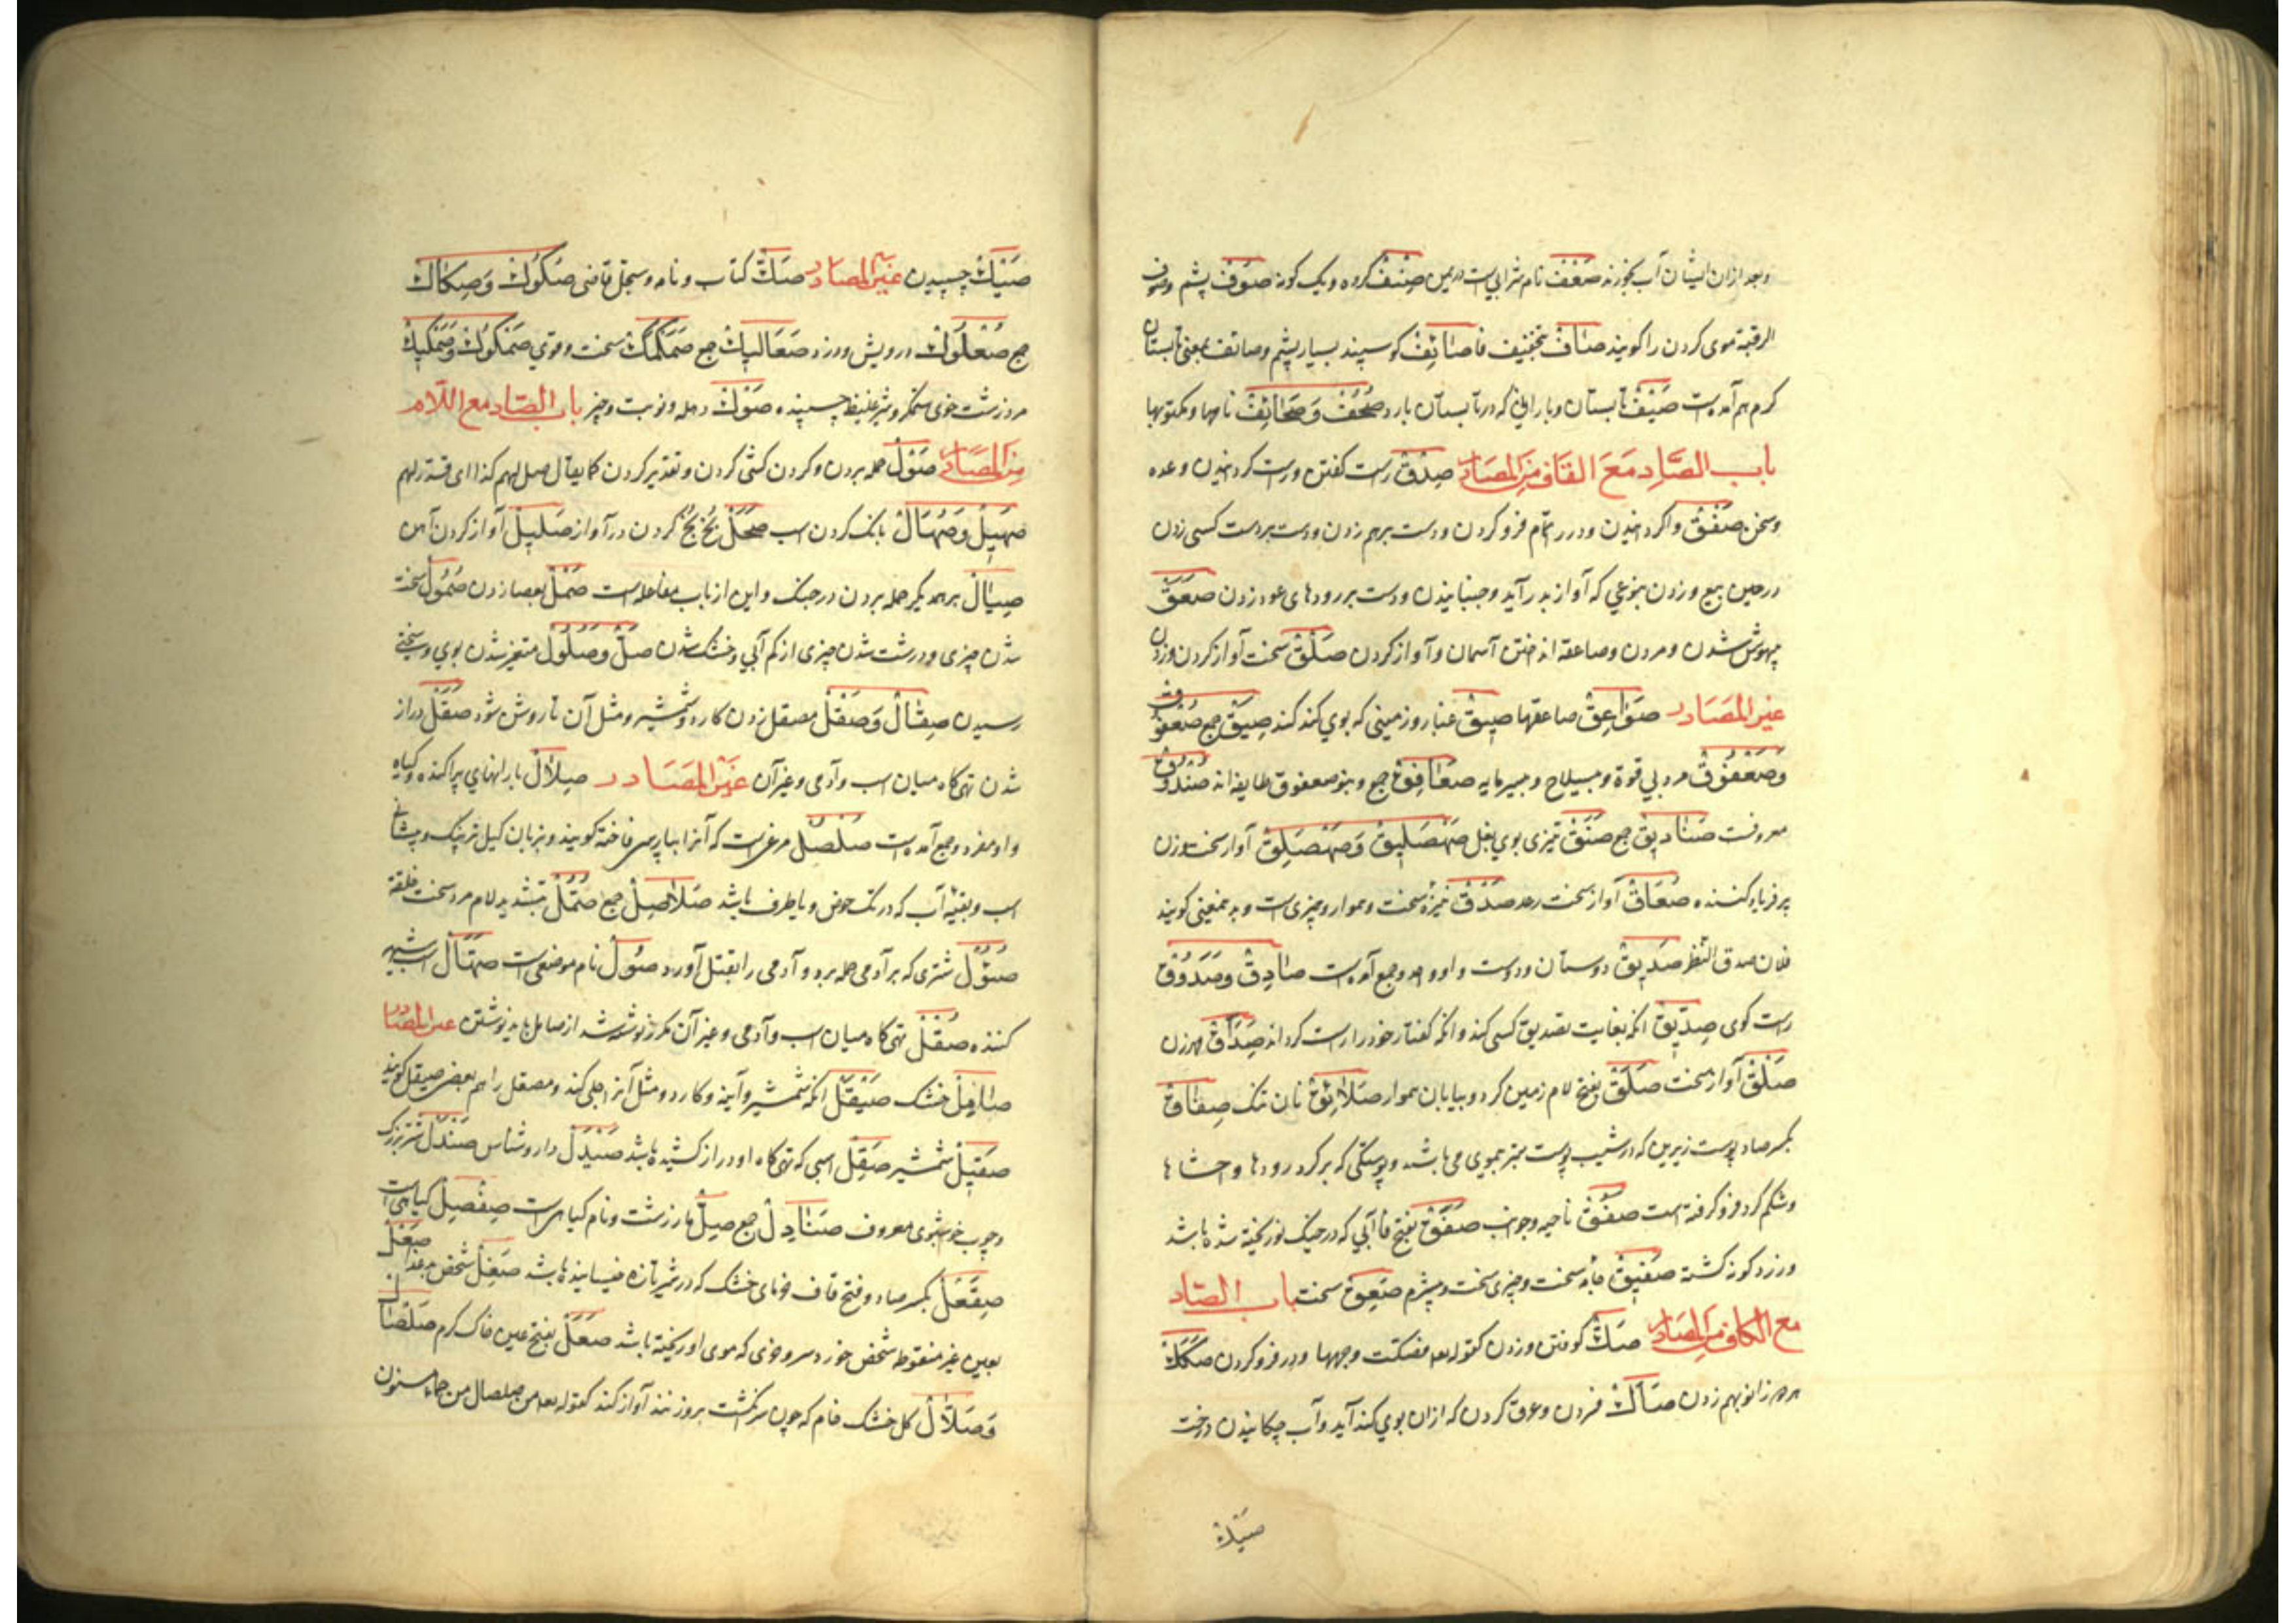 وبعد ازان ایشان آب بخورند صَعْف نام شرابی است در یمن صِنْف کرده و یک کونه صُوف پشم وصوف
الرقبة موی کردن را کویند صَاف بتخفیف فا صَائِف کوسپند بسیار پشم و صائف بمعنی تابستان
کرم هم آمده است صَیْف تابستان و بارانی که در تابستان بارد صُحُف وَصَحَائِف نامها و مکتوبها
باب الصَّاد مَعَ القَاف مِنَ المصَادر صِدْق راست کفتن و راست کردانیدن وعده
وسخن صَفْق واکردانیدن ودر را تمام فرو کردن و دست برهم زدن و دست بر دست کسی زدن
در حین بیع و زدن بنوعی که آواز بدر آید و جنبانیدن و دست بر رودهای عود زدن صَعَق
بیهوش شدن و مردن و صاعقه انداختن آسمان و آواز کردن صَلْق سخت آواز کردن و زدن
غیر المصَادر صَوَاعِق صاعقها صِیق غبار و زمینی که بوی کند کند صِیَق جمع صُعْفُوق
وَصَعْفُوق مرد بی قوة و بیسلاح و بیسرمایه صَعَافِق جمع و بنو صعفوق طایفه اند صُنْدُوق
معروفست صَنَادِیق جمع صَنَق تیزی بوی بغل صَهْصَلِیق وَصَهْصَلِق آواز سخت و زن
پر فریاد کننده صُعَاق آواز سخت رعد صَدْق نیزهٔ سخت و هموار و چیزی راست و بدین معنی کویند
فلان صدق النظر صَدِیق دوستان و دوست و او واحد و جمع آمده است صَادِق وصَدُوق
راست کوی صِدِّیق انکه بغایت تصدیق کسی کند و انکه کفتار خود را راست کرداند صَدَاق مهر زن
صَلْق آواز سخت صَلَق بفتح لام زمین کرد و بیابان هموار صَلَائِق نان تنک صِفَاق
بکسر صاد پوست زیرین که در شیب پوست
وشکم کرد فرو کرفته است صَفْق ناحیه و جوانب صَفَق بفتح فا آبی که در خیک نو ریخته شده باشد
وزرد کونه کشته صَفِیق جامهٔ سخت و چیزی سخت و بیشرم صَعِق سخت باب الصّاد
مع الکاف من المصَادر صَکّ کوفتن و زدن کقوله تعه فصکت وجهها و در فرو کردن صَکَک
هر دو زانو بهم زدن صَاک فردن و عرق کردن که ازان بوی کند آید و آب چکانیدن درخت
صَیْک
صَیْک چسپیدن غیر المصَادر صَکّ کتاب و نامه و سجل قاضی صُکُوک وَصِکَاک
جمع صُعْلُوک درویش و دزد صَعَالِیک جمع صَمَکْمَک سخت و قوی صَمَکُوک وَصَمَکِیک
مرد زشت خوی ستمکر و شیر غلیظ چسپنده صَوْک دمله و نوبت و چیز باب الصّاد مع اللّام
مِنَ المصَادر صَوْل حمله بردن و کردن کشی کردن و تقدیر کردن کما یقال صل لهم کذا ای قدر لهم
صَهِیل وَصُهَال بانک کردن اسب صَحَل بُخ بُخ کردن در آواز صَلِیل آواز کردن آهن
صِیَال بر همدیکر حمله بردن در جنک و این از باب مفاعله است صَمْل بعصا زدن صُمُول سخت
شدن چیزی و درشت شدن چیزی از کم آبی و خشک شدن صَلّ وَصُلُول متغیر شدن بوی و سختی
رسیدن صِقَال وَصَقْل مصقل زدن کارد و شمشیر و مثل آن تا روشن شود صَقَل دراز
شدن تهی کاه میان اسب و آدمی و غیر آن غیر المصَادر صِلَال بارانهای پراکنده و کیاه
و او مفرد و جمع آمده است صُلْصُل مرغیست که آنرا بپارسی فاخته کویند و بزبان کیل تریک و پیشانی
اسب و بقیهٔ آب که در تک حوض و یا ظرف باشد صَلَاصِل جمع صُمُلّ بتشدید لام مرد سخت خلقة
صَوُول شتری که بر آدمی حمله برد و آدمی را بقتل آورد صَوْل نام موضعی است صَهَّال اسب شیهه
کننده صُقْل تهی کاه میان اسب و آدمی و غیر آن مکرر نوشته شد از صامل باید نوشتن غیر المصَادر
صَامِل خشک صَیْقَل انکه شمشیر و آینه و کارد و مثل آنرا جلی کند و مصقل را هم بعضی صیقل کویند
صَقِیل شمشیر صَقِل اسبی که تهی کاه او دراز کشیده باشد صَیْدَل داروشناس صَنْدَل شتر بزرک
وچوب خوشبوی معروف صَنَادِل جمع صِلّ مار زشت و نام کیاهیست صِفْصِل کیاهی است
صِقَعْل بکسر صاد و فتح قاف خرمای خشک که در شیر تازه خیسانیده باشد صَغِل شخص بدغذا صَعْل
بعین غیر منقوطه شخص خورد سر و خری که موی او ریخته باشد صَعَل بفتح عین خاک کرم صَلْصَال
وَصَلَّال کل خشک خام که چون سر انکشت بروزنند آواز کند کقوله تعه من صلصال من حماء مسنون